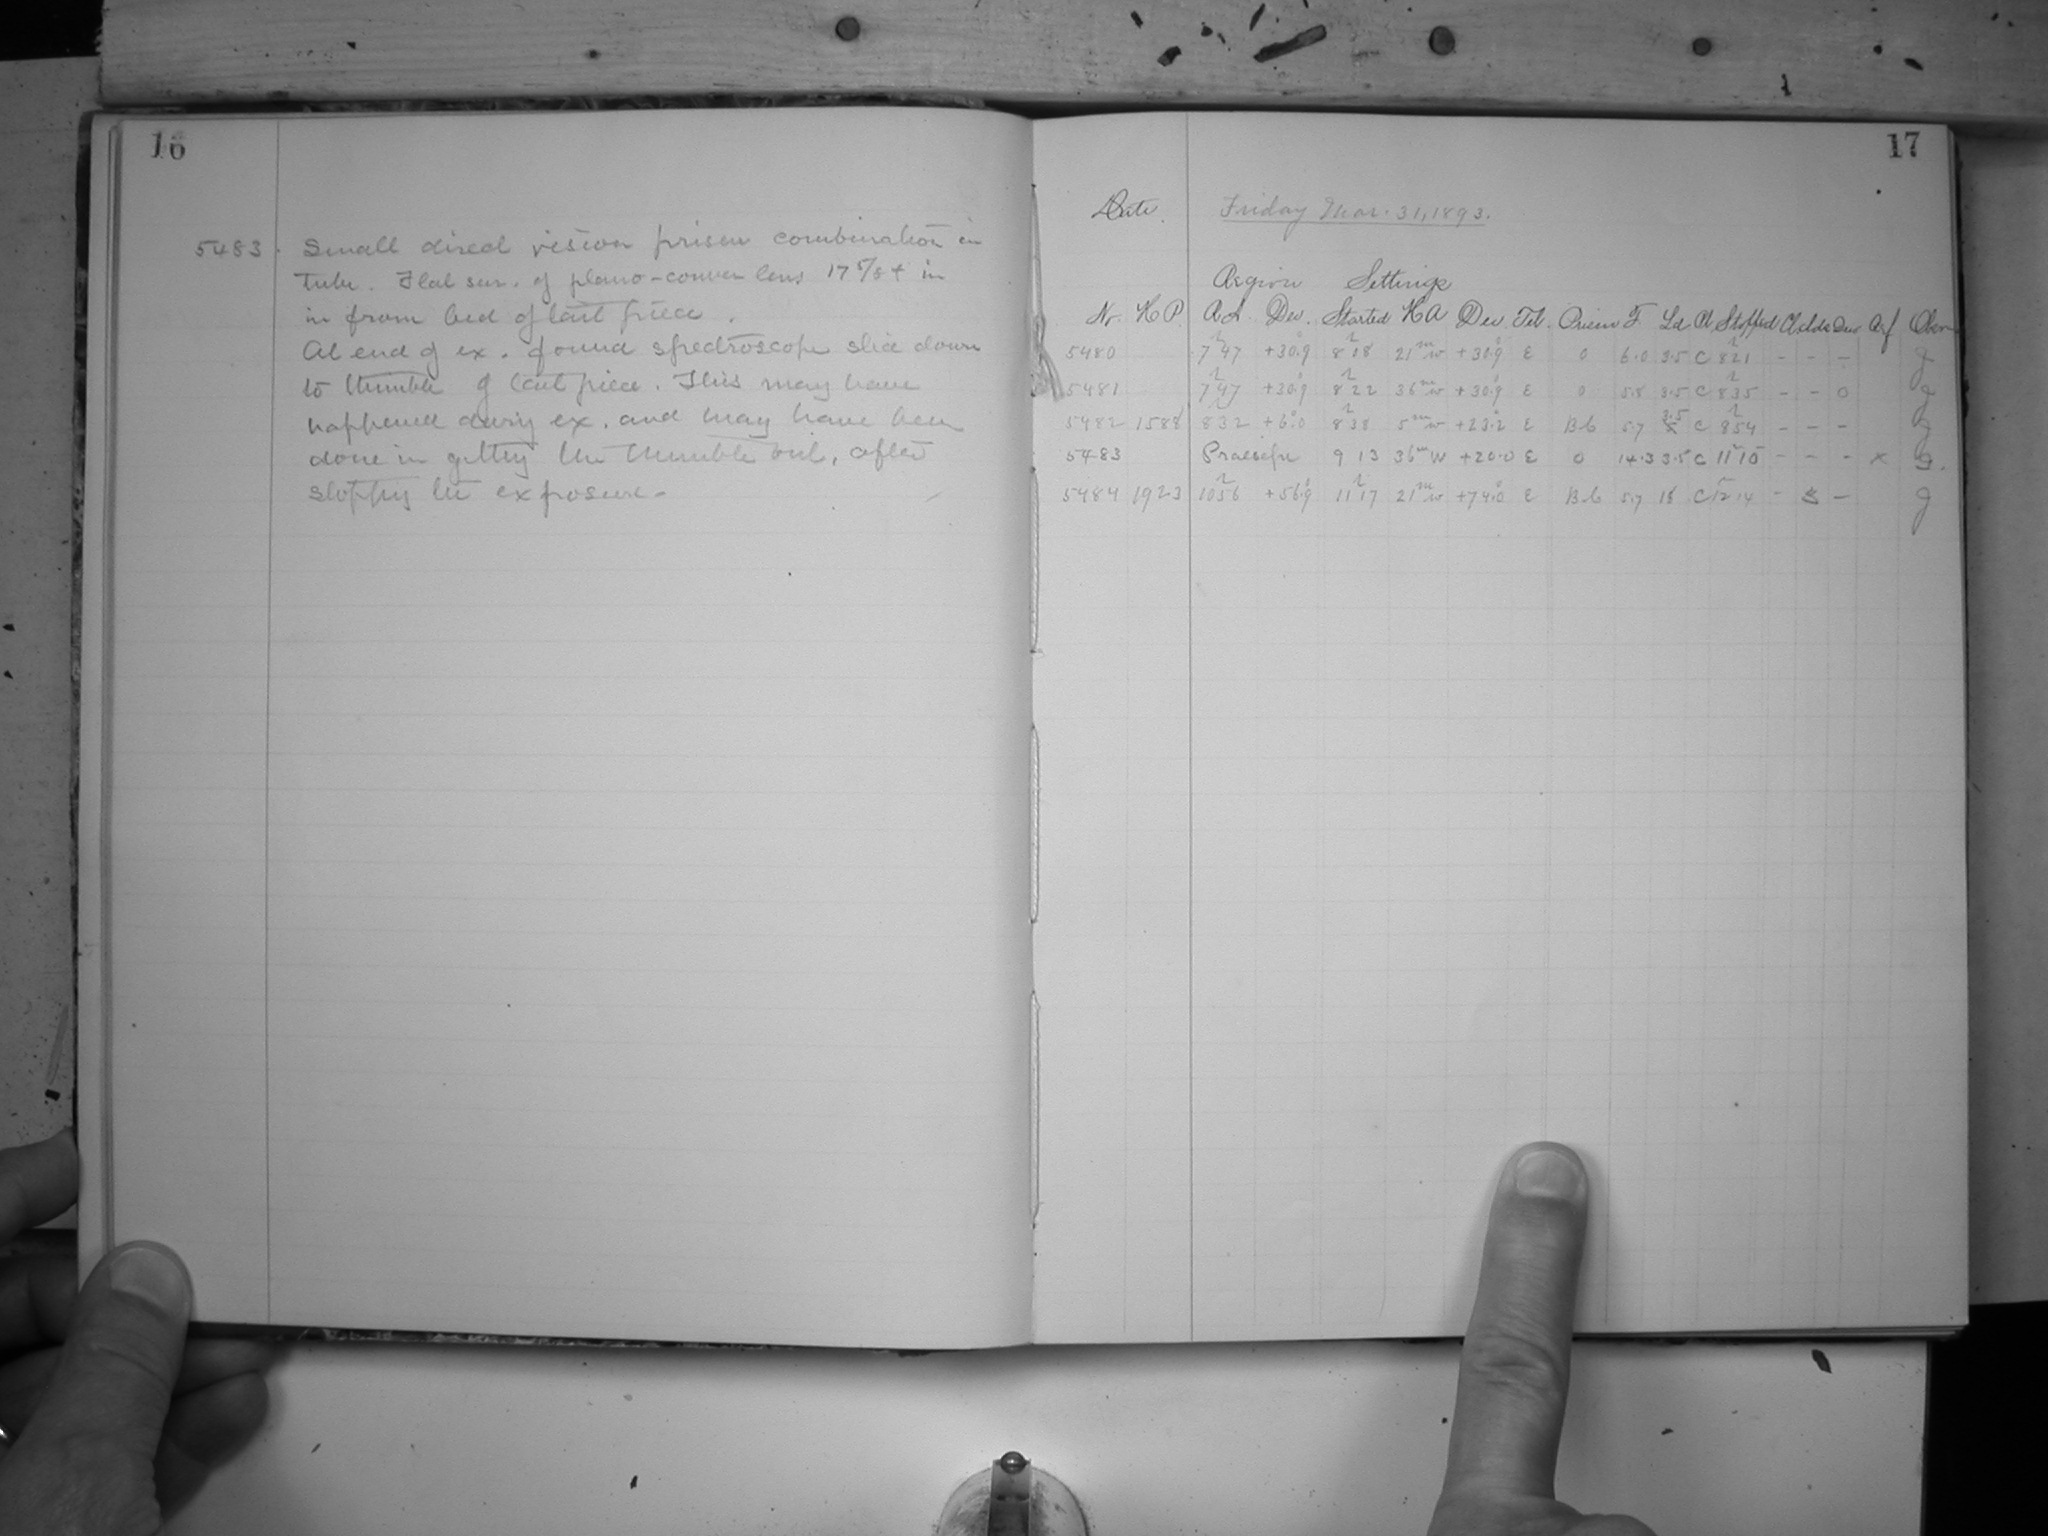 16
5483. Small direct vision prism combination in
tube. Flat sur. of plano-convex lens 17 5/8 + in
in from bed of tail piece.
At end of ex. found spectroscope slid down
to thimble of tail piece. This may have
happened during ex. and may have been
done in getting the thimble out, after
stopping the exposure.
17
Date Friday Mar. 31, 1893.
Region Settings
Nr. H P. A.R. Dec. Started H A Dec Tel. Prism T. Ld Pl Stopped Clds Obser
5480 7h47 +30°.9 8h18 21m w +30°.9 E 0 6.0 3.5 C 8h21 - - - g
5481 7h47 +30°.9 8h22 36m w +30°.9 E 0 5.8 3.5 C 8h35 - - 0 g
5482 1588 8 32 +6°.0 8h38 5m w +23°.2 E B6 5.7 3.5 C 8h54 - - - g
5483 Praesepe 9 13 36m W +20.0 E 0 14.3 3.5 C 11h10 - - - x G.
5484 1923 10h56 +56°.9 11h17 21m w +74°.0 E B6 5.7 18 C 12h14 - S - g